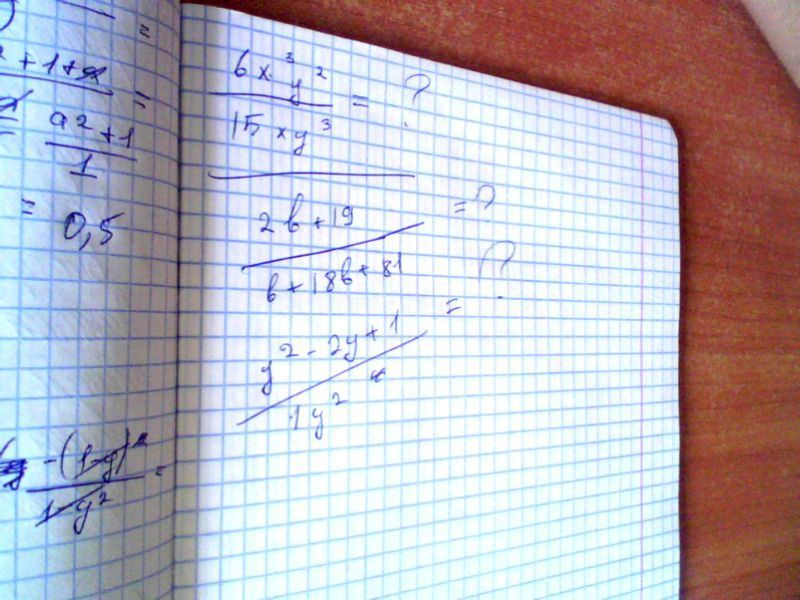 =
2 + 1 + a
=
a2 + 1
1
= 0,5
-(1-y)2
=
1-y2
6x3y2
= ?
15xy3
2b+19
= ?
b+18b+81
y2-2y+1
= ?
1y2